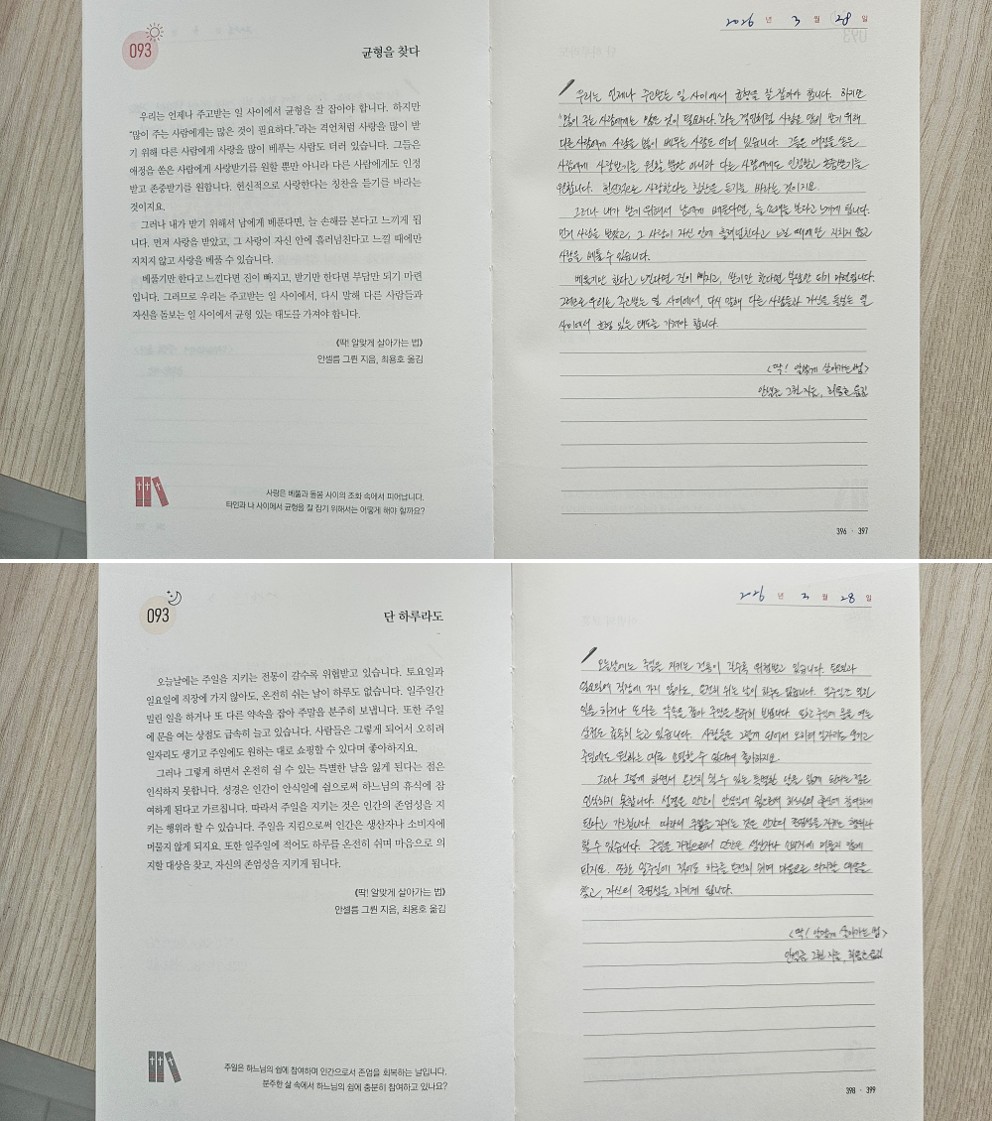 093
균형을 찾다
우리는 언제나 주고받는 일 사이에서 균형을 잘 잡아야 합니다. 하지만
“많이 주는 사람에게는 많은 것이 필요하다.”라는 격언처럼 사랑을 많이 받
기 위해 다른 사람에게 사랑을 많이 베푸는 사람도 더러 있습니다. 그들은
애정을 쏟은 사람에게 사랑받기를 원할 뿐만 아니라 다른 사람에게도 인정
받고 존중받기를 원합니다. 헌신적으로 사랑한다는 칭찬을 듣기를 바라는
것이지요.
그러나 내가 받기 위해서 남에게 베푼다면, 늘 손해를 본다고 느끼게 됩
니다. 먼저 사랑을 받았고, 그 사랑이 자신 안에 흘러넘친다고 느낄 때에만
지치지 않고 사랑을 베풀 수 있습니다.
베풀기만 한다고 느낀다면 진이 빠지고, 받기만 한다면 부담만 되기 마련
입니다. 그러므로 우리는 주고받는 일 사이에서, 다시 말해 다른 사람들과
자신을 돌보는 일 사이에서 균형 있는 태도를 가져야 합니다.
《딱! 알맞게 살아가는 법》
안셀름 그륀 지음, 최용호 옮김
사랑은 베풂과 돌봄 사이의 조화 속에서 피어납니다.
타인과 나 사이에서 균형을 잘 잡기 위해서는 어떻게 해야 할까요?
2026 년 3 월 28 일
우리는 언제나 주고받는 일 사이에서 균형을 잘 잡아야 합니다. 하지만
“많이 주는 사람에게는 많은 것이 필요하다.”라는 격언처럼 사랑을 많이 받기 위해
다른 사람에게 사랑을 많이 베푸는 사람도 더러 있습니다. 그들은 애정을 쏟은
사람에게 사랑받기를 원할 뿐만 아니라 다른 사람에게도 인정받고 존중받기를
원합니다. 헌신적으로 사랑한다는 칭찬을 듣기를 바라는 것이지요.
그러나 내가 받기 위해서 남에게 베푼다면, 늘 손해를 본다고 느끼게 됩니다.
먼저 사랑을 받았고, 그 사랑이 자신 안에 흘러넘친다고 느낄 때에만 지치지 않고
사랑을 베풀 수 있습니다.
베풀기만 한다고 느낀다면 진이 빠지고, 받기만 한다면 부담만 되기 마련입니다.
그러므로 우리는 주고받는 일 사이에서, 다시 말해 다른 사람들과 자신을 돌보는 일
사이에서 균형 있는 태도를 가져야 합니다.
<딱! 알맞게 살아가는 법>
안셀름 그륀 지음, 최용호 옮김
396 · 397
093
단 하루라도
오늘날에는 주일을 지키는 전통이 갈수록 위협받고 있습니다. 토요일과
일요일에 직장에 가지 않아도, 온전히 쉬는 날이 하루도 없습니다. 일주일간
밀린 일을 하거나 또 다른 약속을 잡아 주말을 분주히 보냅니다. 또한 주일
에 문을 여는 상점도 급속히 늘고 있습니다. 사람들은 그렇게 되어서 오히려
일자리도 생기고 주일에도 원하는 대로 쇼핑할 수 있다며 좋아하지요.
그러나 그렇게 하면서 온전히 쉴 수 있는 특별한 날을 잃게 된다는 점은
인식하지 못합니다. 성경은 인간이 안식일에 쉼으로써 하느님의 휴식에 참
여하게 된다고 가르칩니다. 따라서 주일을 지키는 것은 인간의 존엄성을 지
키는 행위라 할 수 있습니다. 주일을 지킴으로써 인간은 생산자나 소비자에
머물지 않게 되지요. 또한 일주일에 적어도 하루를 온전히 쉬며 마음으로 의
지할 대상을 찾고, 자신의 존엄성을 지키게 됩니다.
《딱! 알맞게 살아가는 법》
안셀름 그륀 지음, 최용호 옮김
주일은 하느님의 쉼에 참여하며 인간으로서 존엄을 회복하는 날입니다.
분주한 삶 속에서 하느님의 쉼에 충분히 참여하고 있나요?
2026 년 3 월 28 일
오늘날에는 주일을 지키는 전통이 갈수록 위협받고 있습니다. 토요일과
일요일에 직장에 가지 않아도, 온전히 쉬는 날이 하루도 없습니다. 일주일간 밀린
일을 하거나 또 다른 약속을 잡아 주말을 분주히 보냅니다. 또한 주일에 문을 여는
상점도 급속히 늘고 있습니다. 사람들은 그렇게 되어서 오히려 일자리도 생기고
주일에도 원하는 대로 쇼핑할 수 있다며 좋아하지요.
그러나 그렇게 하면서 온전히 쉴 수 있는 특별한 날을 잃게 된다는 점은
인식하지 못합니다. 성경은 인간이 안식일에 쉼으로써 하느님의 휴식에 참여하게
된다고 가르칩니다. 따라서 주일을 지키는 것은 인간의 존엄성을 지키는 행위라
할 수 있습니다. 주일을 지킴으로써 인간은 생산자나 소비자에 머물지 않게
되지요. 또한 일주일에 적어도 하루를 온전히 쉬며 마음으로 의지할 대상을
찾고, 자신의 존엄성을 지키게 됩니다.
<딱! 알맞게 살아가는 법>
안셀름 그륀 지음, 최용호 옮김
398 · 399